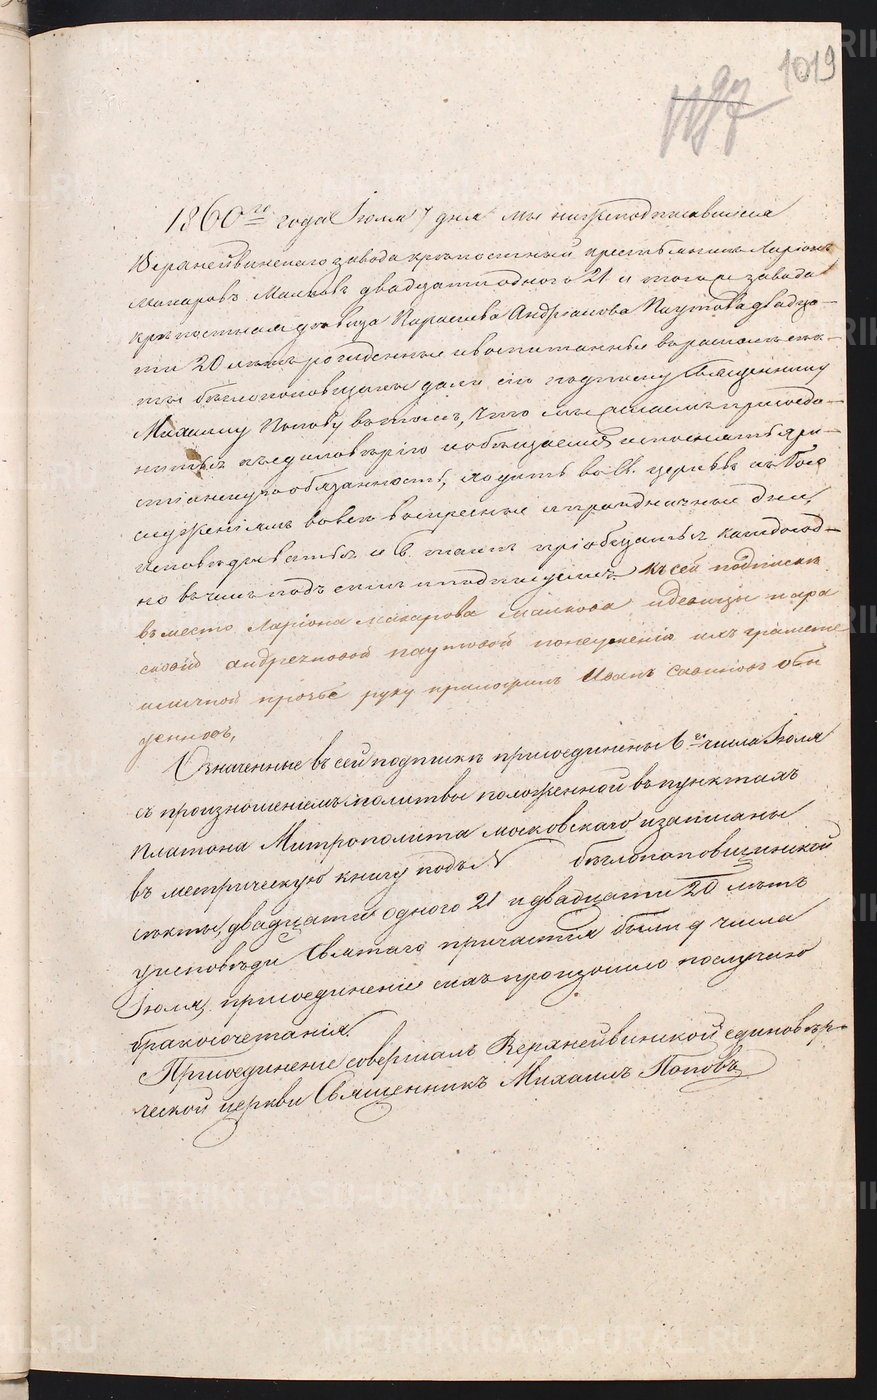 1019
1197
1860го года Іюля 7 дня мы нижеподписавшіеся
Верхнейвинскаго завода крѣпостный крестьянинъ Ларіонъ
Макаровъ Малковъ двадцати одного 21 и того же завода
крѣпостная дѣвица Параскева Андріанова Паутова двадца-
ти 20 лѣтъ рожденные и воспитанные въ расколѣ сек-
ты бѣглопоповщины дали сію подписку Священнику
Михаилу Попову въ томъ, что мы желаемъ присоеди-
ниться къ единовѣрію и обѣщаемся исполнять Хри-
стіанскую обязанность, ходить во Св. церковь къ Бого
служеніямъ во всѣ воскресные и праздничные дни,
исповѣдываться и Св. таинъ пріобщаться каждогод-
но въ чемъ подъ симъ и подписуемся къ сей подпискѣ
въместо Ларіона Макарова Малкова и девицы пара
сковіи андреяновой паутовой понеумению ихъ грамоте
иличной прозбе руку приложилъ Иванъ Савиновъ
Означенные въ сей подпискѣ присоединены 6го числа Іюля
съ произношеніемъ молитвы положенной въ пунктахъ
Платона Митрополита Московскаго и записаны
въ метрическую книгу подъ № бѣглопоповщинской
секты, двадцати одного 21 и двадцати 20 лѣтъ
у исповѣди и Святаго причастія были 9 числа
Іюля, присоединеніе ихъ произошло послучаю
бракосочетанія.
Присоединеніе совершалъ Верхнейвинской единовѣр-
ческой церкви Священникъ Михаилъ Поповъ
METRIKI.GASO-URAL.RU